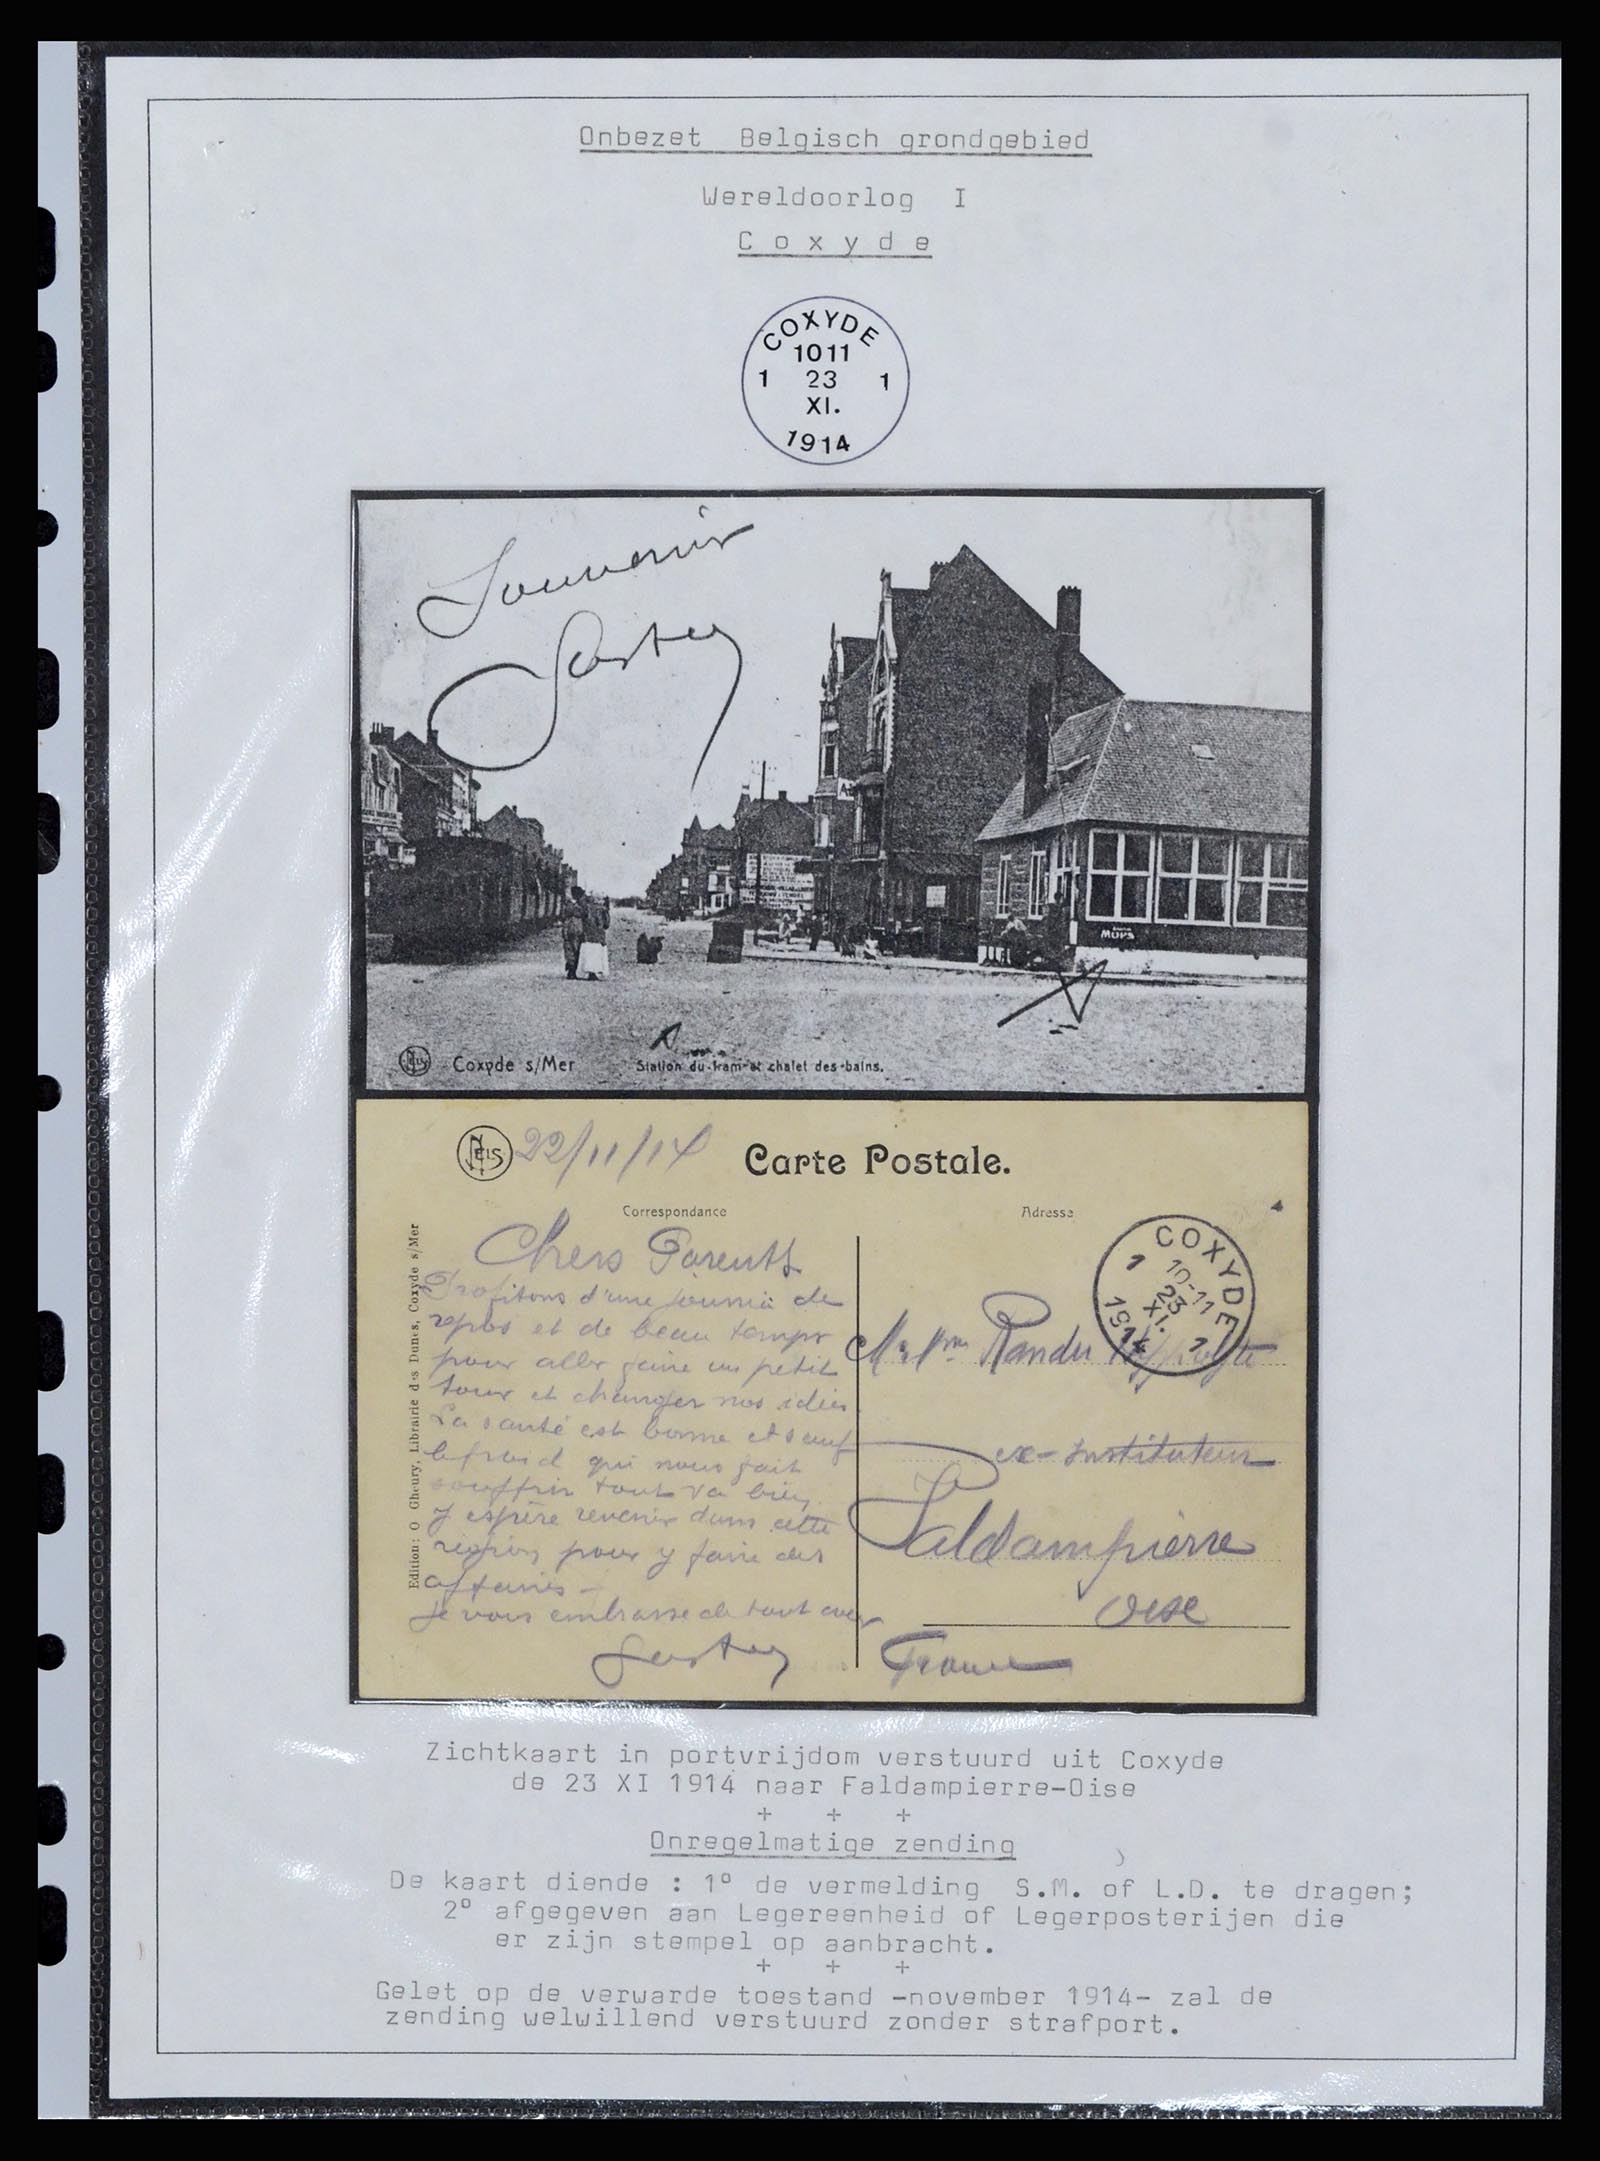 Onbezet Belgisch grondgebied
Wereldoorlog I
Coxyde
COXYDE
1011
1 23 1
XI.
1914
Souvenir
NELS
Coxyde s/Mer
Station du tram et chalet des bains.
MOPS
NELS
22/11/14
Carte Postale.
Correspondance
Adresse
Edition: O Gheury, Librairie des Dunes, Coxyde s/Mer
Chers Parents
Profitons d'une journée de
repos et de beau temps
pour aller faire un petit
tour et changer nos idées.
La santé est bonne et sauf
le froid qui nous fait
souffrir tout va bien.
J espère revenir dans cette
région pour y faire des
affaires -
Je vous embrasse de tout cœur
COXYDE
1 10-11
23
XI.
1914
Mr Mme Randu Hippolyte
ex-Instituteur
Faldampierre
Oise
France
Zichtkaart in portvrijdom verstuurd uit Coxyde
de 23 XI 1914 naar Faldampierre-Oise
+ + +
Onregelmatige zending
De kaart diende : 1° de vermelding S.M. of L.D. te dragen;
2° afgegeven aan Legereenheid of Legerposterijen die
er zijn stempel op aanbracht.
+ + +
Gelet op de verwarde toestand -november 1914- zal de
zending welwillend verstuurd zonder strafport.